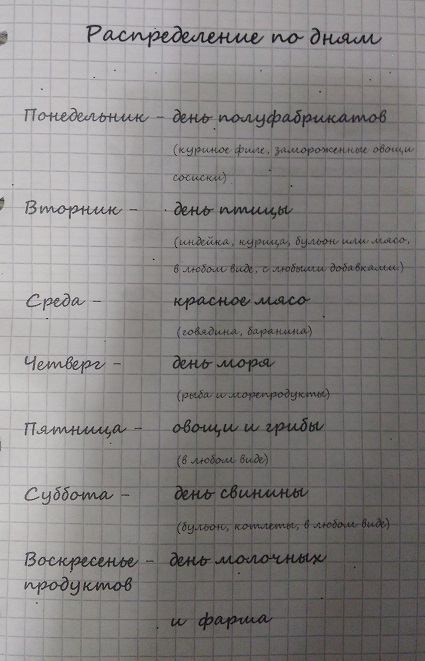 Распределение по дням
Понедельник - день полуфабрикатов
(куриное филе, замороженные овощи
сосиски)
Вторник - день птицы
(индейка, курица, бульон или мясо,
в любом виде, с любыми добавками)
Среда - красное мясо
(говядина, баранина)
Четверг - день моря
(рыба и морепродукты)
Пятница - овощи и грибы
(в любом виде)
Суббота - день свинины
(бульон, котлеты, в любом виде)
Воскресенье - день молочных
продуктов
и фарша